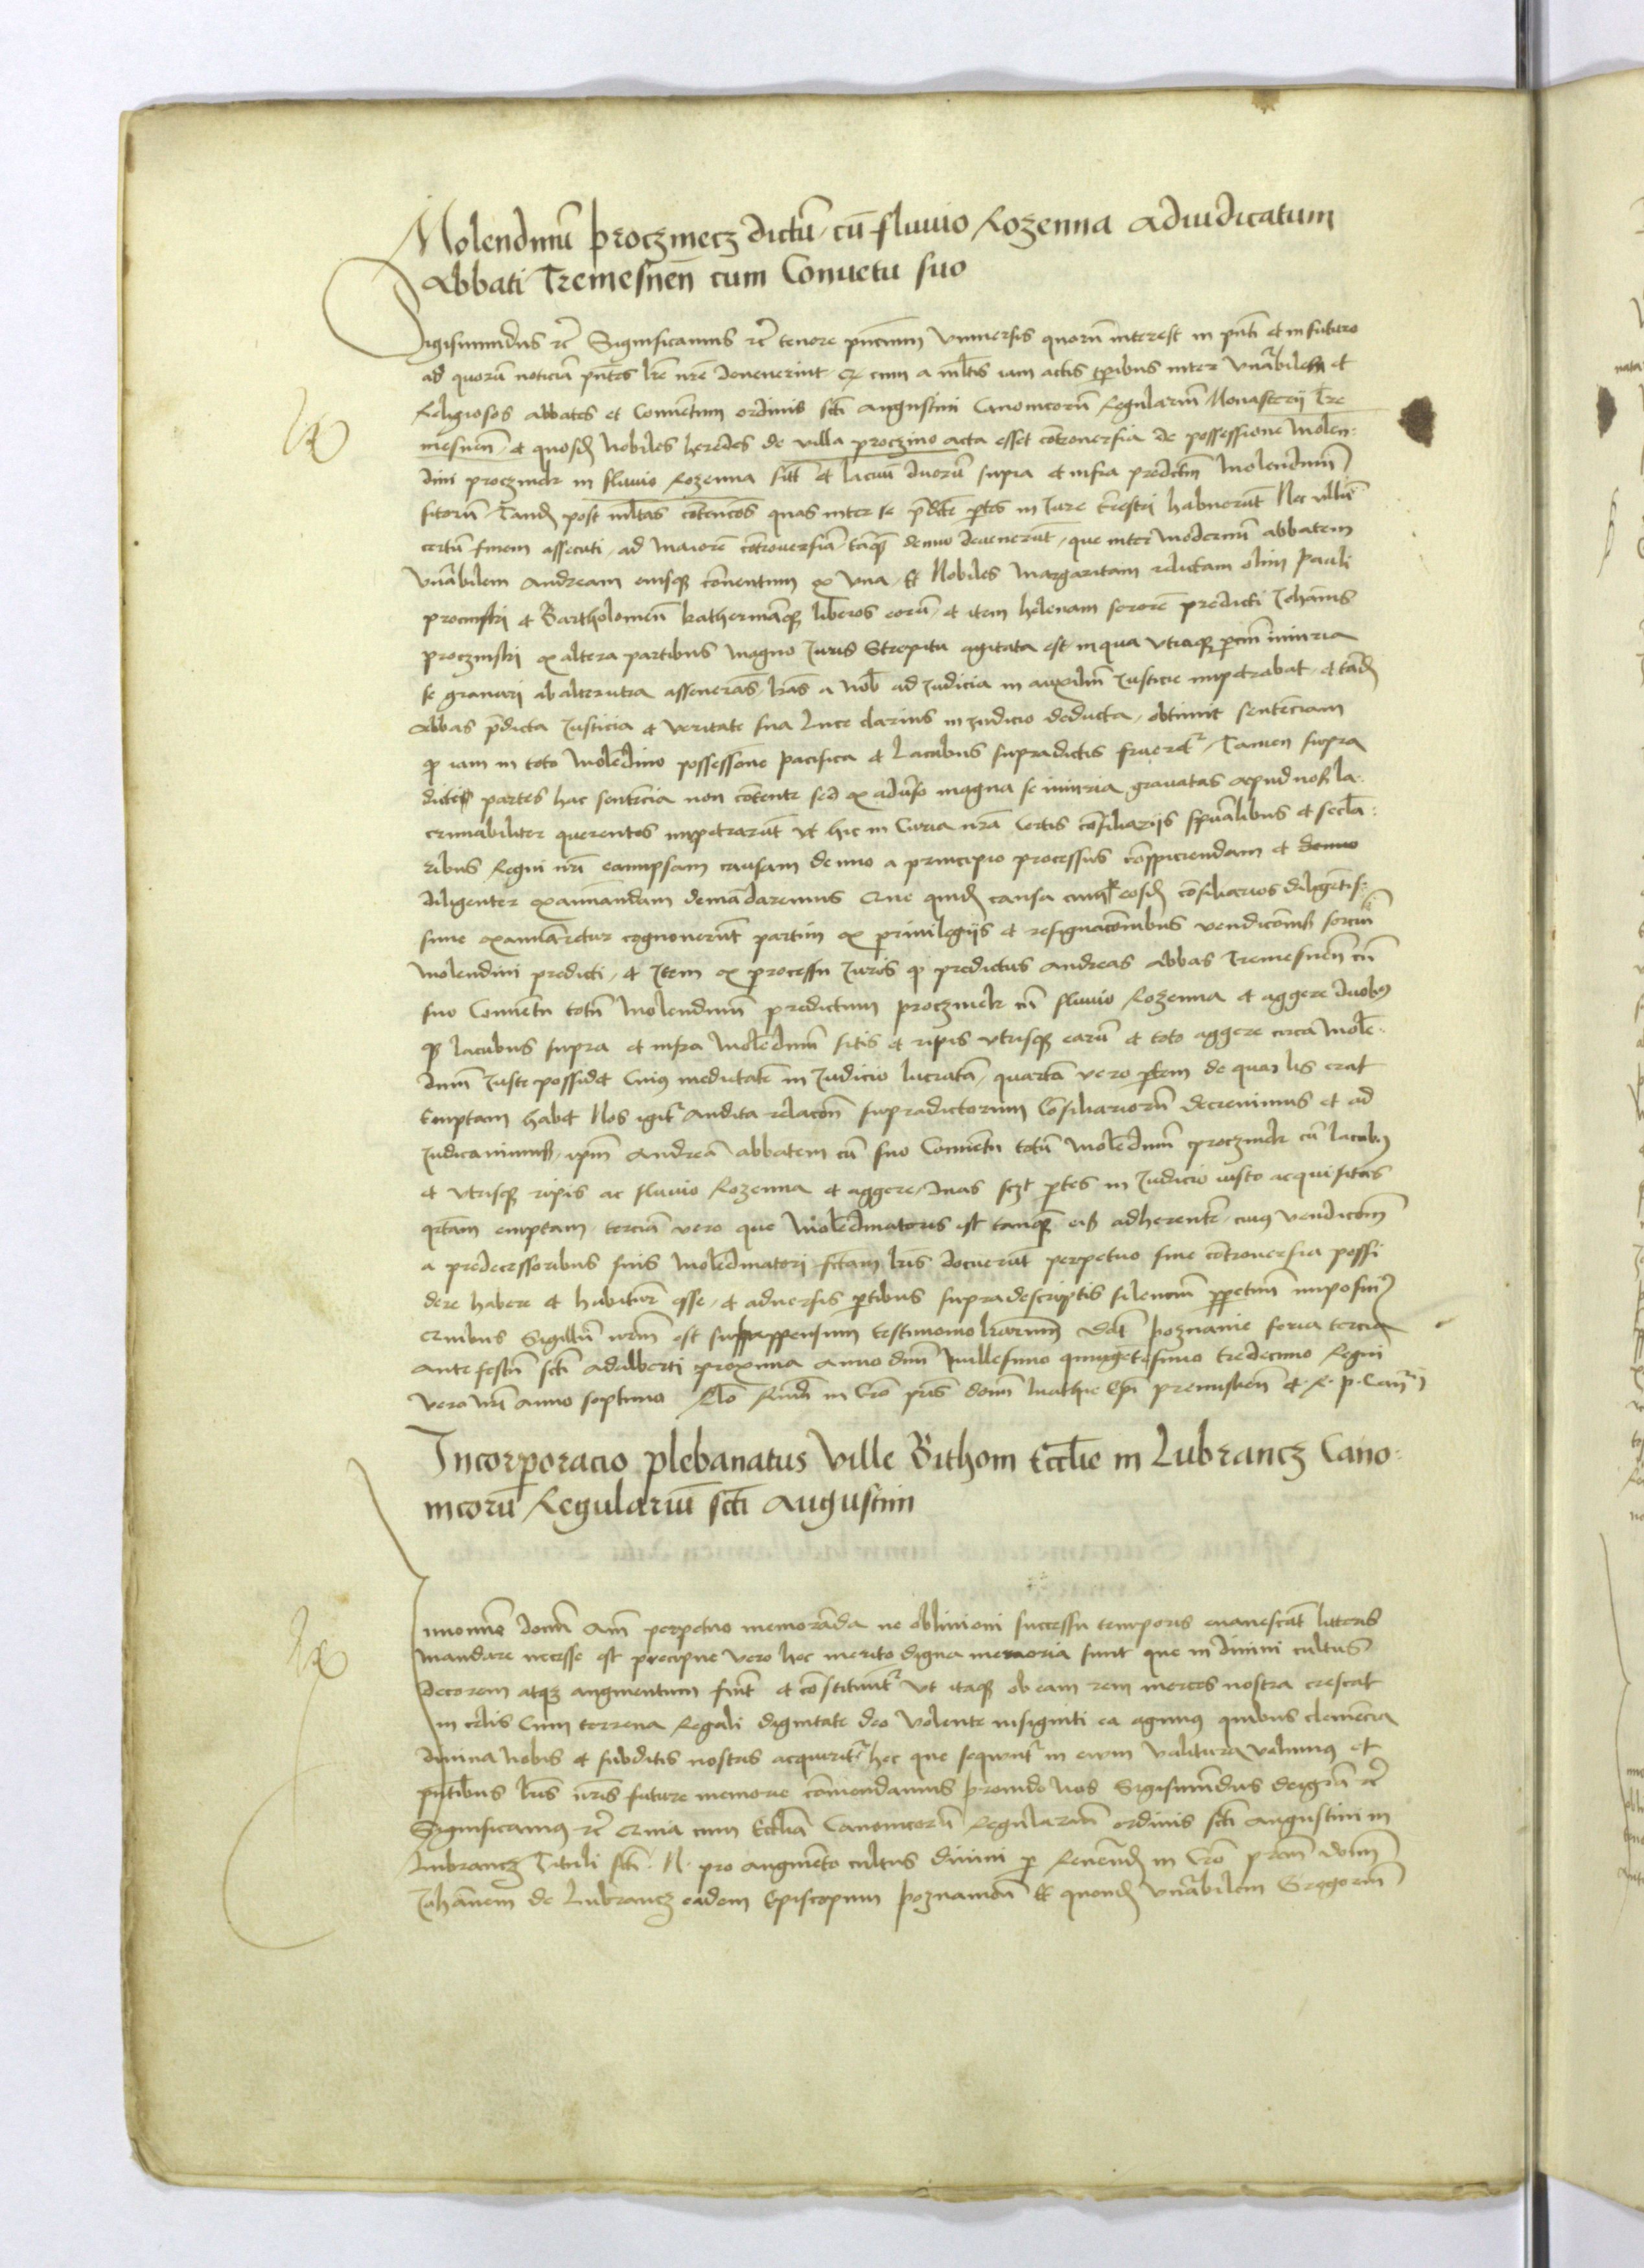 Molendinū proczmecz dictū cū fluuio Rozenna adiudicatum
Abbati Tremesnen̄ cum Conuētu suo
Sigismundus rc̄ Significamus rc̄ tenore pn̄cium Vniuersis quorū interest in pn̄ti et in futuro
ad quorū noticiā pn̄tes lr̄e nr̄e deuenerint cum a ml̄tis iam actis tp̄ibus inter Vn̄abilem et
Religiosos abbates et Conuentum ordinis sc̄ti augustini Canonicorū Regulariū Monasterij Tre
mesnen̄ et quosdā Nobiles heredes de villa proczino acta esset cōtrouersia de possessione Molen-
dini proczmek in fluuio Rozenna sitī et lacuū duorū supra et infra predictū Molendinū
sitorū Tandē post ml̄tas cōtencōes quas inter se p̄dicte p̄tes in Iure t̄restri habuerūt Nec ullū
certū finem assecuti ad maiorē cōtrouersiā tāꝙ denuo deuenerūt que inter modernū abbatem
Vn̄abilem Andream eiusqꝫ conuentum ex Vna Et Nobiles Margaritam relictam olim Pauli
procinski et Bartholomeū katherināqꝫ liberos eorū et item helenam sororē predicti Johānis
proczinski ex altera partibus magno Iuris Strepitu agitata est in qua vtraqꝫ parciū iniuria
se grauari ab alterutra asseuerās lr̄as a nob̄ ad Iudicia in auxiliū Iusticie impetrabat et tādē
Abbas p̄dicta Iusticia et veritate sua luce clarius in iudicio deducta obtinuit sentēciam
ꝙ iam in toto molēdino possessione pacifica et Lacubus supradictis frueretr̄ Tamen supra
dictis partes hac sentēcia non cōtente sed ex aduerso magna se iniuria grauatas apud nos la-
crimabiliter querentes impetrarūt vt hic in Curia nr̄a certis cōsiliarijs spūalibus et secl̄a-
ribus Regni nr̄i eampsam causam denuo a principio processus cōspiciendam et denuo
diligenter exaīandam demādaremus Que quidē causa cum eosdē cōsiliarios diligētis-
sime examīaretur cognouerūt partim ex priuilegijs et resignacōnibus vendicōnis sorciū
molendini predicti et Item ex processu Iuris ꝙ predictus Andreas Abbas Tremesnen̄ cū
suo Conuētu totū molendinū predictum proczmek cū fluuio Rozenna et aggere duobꝰ
qꝫ lacubus supra et infra molēdinū sitis et ripis vtrisqꝫ earū et toto aggere circa mole-
dinū Iuste possidet Cuiꝰ medietatē in Iudicio lucratā quartā vero p̄tem de qua lis erat
Emptam habet Nos igitr̄ audita relacōn̄ supradictorum Cōsiliariorū decreuimus et ad
Iudicauimus ipm̄ Andreā abbatem cū suo Conuētu totū molēdinū proczmek cū lacubꝰ
et vtrisqꝫ ripis ac fluuio Rozenna et aggere duas scꝫt p̄tes in Iudicio iusto acquisitas
qrtam emptam terciā vero que molēdinatoris est tanqꝫ eis adherentē cuiꝰ vendicōnē
a predecessoribus suis molēdinatori fctam lr̄is docuerūt perpetuo sine cōtrouersia possi
dere habere et habiturū esse et aduersis p̄tibus supradescriptis silenciū ppetuū imposuimꝰ
Quibus Sigillū nr̄m est subappensum testimonio lr̄arum Dat̄ Poznanie feria tercia
ante festū sc̄ti adalberti proxima Anno dn̄i millesimo quingētesimo tredecimo Regni
vero nr̄i anno septimo Rl̄o Rn̄di in Cr̄o pr̄is domī Mathie Ep̄i premislien̄ et R. p. Canr̄ij
Incorporacio plebanatus Ville Bithom Eccl̄ie in Lubrancz Cano-
nicorū Regulariū sc̄ti Augustini
In noīne domī Am̄ perpetuo memorāda ne obliuioni successu temporis euanescāt litteris
mandare necesse est precipue vero hec merito digna memoria sunt que in diuini cultus
decorem atqꝫ augmentum fiūt et cōstituūtr̄ vt itaqꝫ ob eam rem merces nostra crescat
in celis Cum terrena Regali dignitate deo volente insigniti ea agimꝰ quibus clemēcia
diuina nobis et subditis nostris acquiritr̄ hec que sequūtr̄ in euum valitura volumꝰ et
pn̄tibus lr̄is nr̄is future memorie cōmendamus Proinde Nos Sigismūdus dei grā rc̄
Significamꝰ rc̄ Quia cum Eccliā Canonicorū Regulariū ordinis sc̄ti Augustini in
Lubrancz Tituli sc̄ti N. pro augmēto cultus diuini p Reuerēdū in Cr̄o prēm domī
Johānem de Lubrancz eadem Episcopum Poznanien̄ Et quondā Vn̄abilem Gregoriū